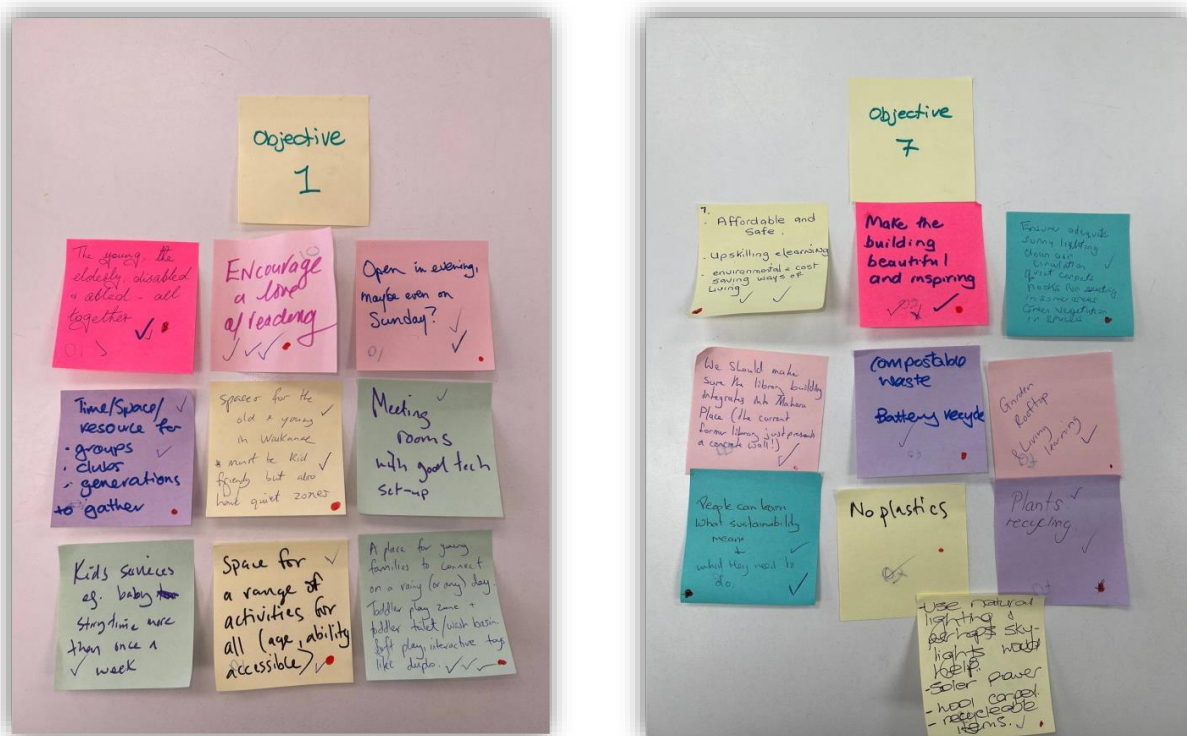 Objective
1
The young, the
elderly, disabled
& abled - all
together
Encourage
a love
of reading
Open in evening,
maybe even on
Sunday?
Time/Space/
resource for
• groups
• clubs
• generations
to gather
Spaces for the
old & young
in Waikanae
* must be kid
friendly but also
have quiet zones
Meeting
rooms
with good tech
set-up
Kids services
eg. baby
storytime more
than once a
week
Space for
a range of
activities for
all (age, ability
accessible)
A place for young
families to connect
on a rainy (or any) day.
Toddler play zone +
toddler toilet/wash basin.
Soft play, interactive toys
like duplo.
Objective
7
7.
. Affordable and
Safe.
- Upskilling elearning
- environmental & cost
saving ways of
living
Make the
building
beautiful
and inspiring
Ensure adequate
sunny lighting
clean air
circulation
quiet carpets
nooks for seating
in zone areas
Green vegetation
in spaces
We should make
sure the library building
integrates into Mahara
Place (the current
former library just presents
a concrete wall!)
compostable
waste
Battery recycle
Garden
Rooftop
& Living
learning
People can learn
what sustainability
means
+
what they need to
do.
No plastics
Plants
recycling
- Use natural
lighting &
perhaps sky-
lights would
help.
- Soler power
- wool carpet.
- recycleable
items.